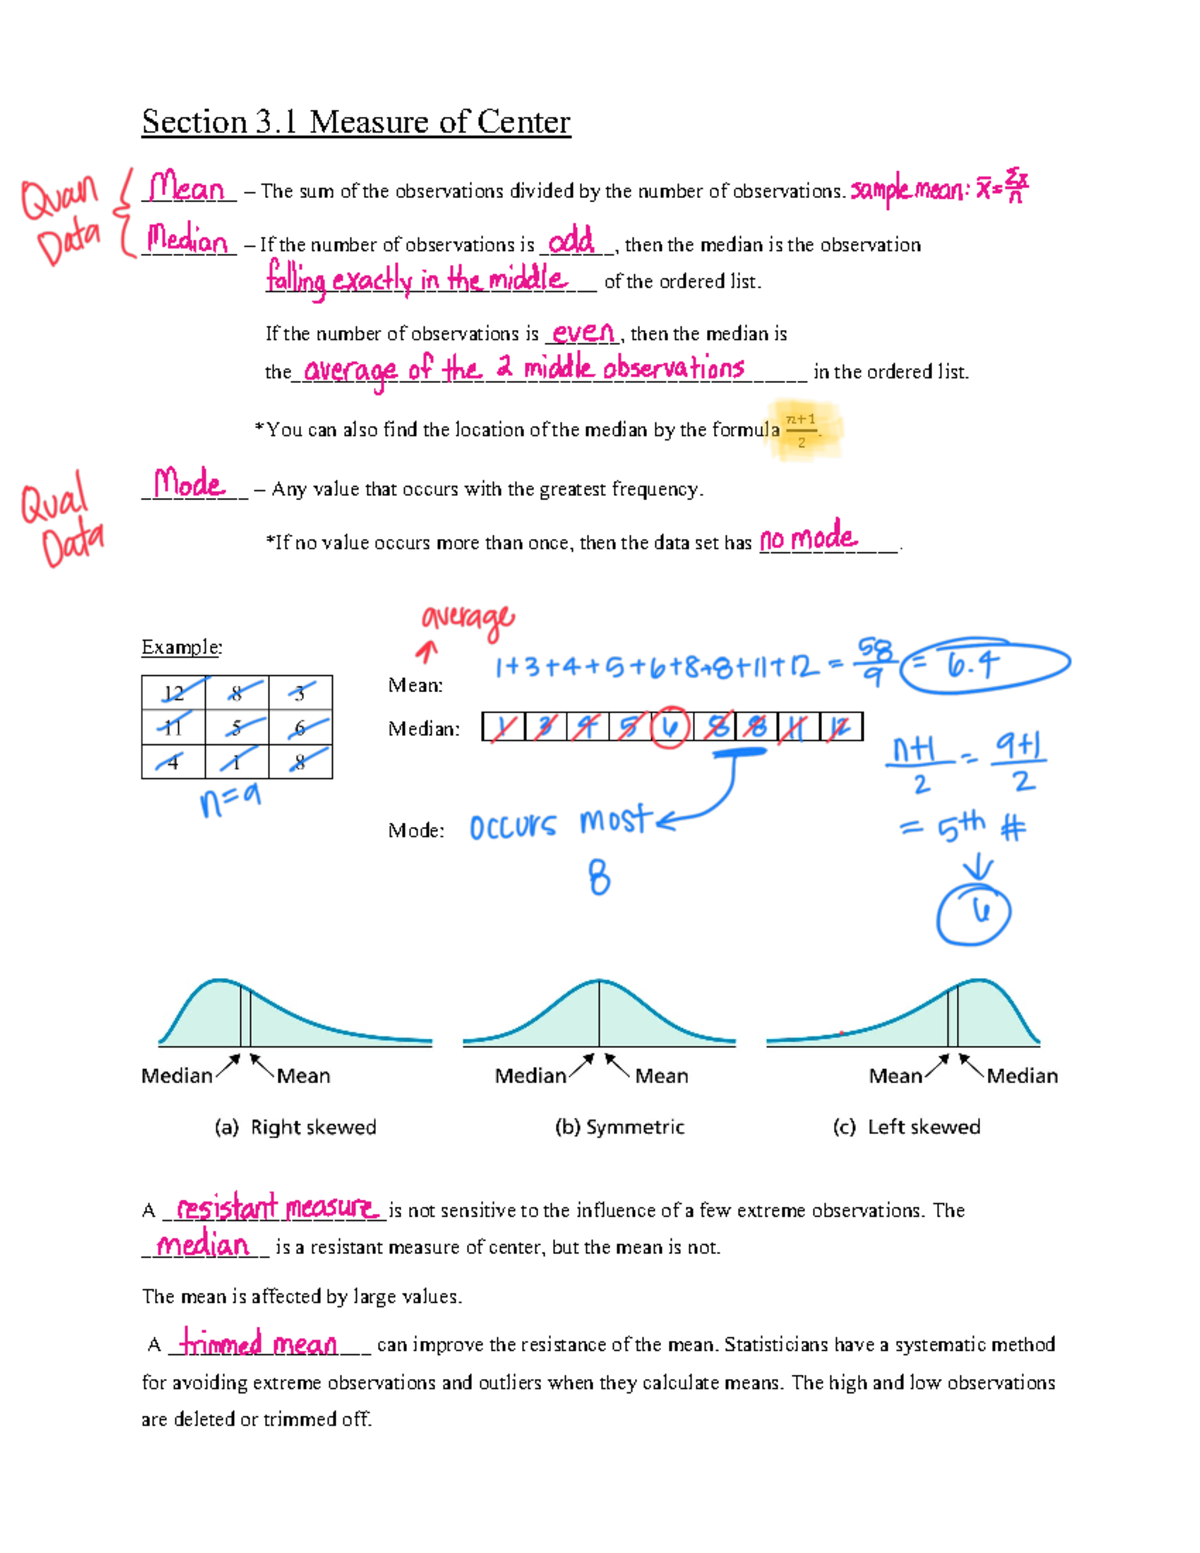 Section 3.1 Measure of Center
Quan
Data
Mean – The sum of the observations divided by the number of observations. sample mean: x̄ = Σx/n
Median – If the number of observations is odd, then the median is the observation
falling exactly in the middle of the ordered list.
If the number of observations is even, then the median is
the average of the 2 middle observations in the ordered list.
*You can also find the location of the median by the formula n+1/2.
Qual
Data
Mode – Any value that occurs with the greatest frequency.
*If no value occurs more than once, then the data set has no mode.
average
Example:
12 8 3
11 5 6
4 1 8
n=9
Mean: 1+3+4+5+6+8+8+11+12 = 58/9 = 6.4
Median: 1 3 4 5 6 8 8 11 12
n+1/2 = 9+1/2
= 5th #
6
Mode: occurs most
8
Median Mean
(a) Right skewed
Median Mean
(b) Symmetric
Mean Median
(c) Left skewed
A resistant measure is not sensitive to the influence of a few extreme observations. The
median is a resistant measure of center, but the mean is not.
The mean is affected by large values.
A trimmed mean can improve the resistance of the mean. Statisticians have a systematic method
for avoiding extreme observations and outliers when they calculate means. The high and low observations
are deleted or trimmed off.